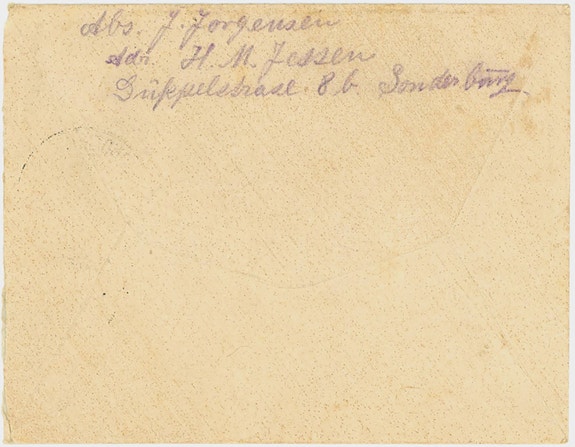 Abs. J. Jorgensen
Adr. H. M. Jessen
Düppelstrase 8 b. Sonderburg.